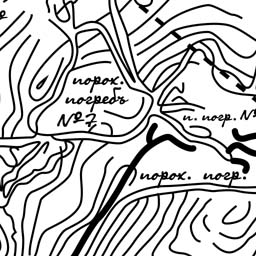 порох.
погребъ
№ 7
п. погр. №
порох. погр.